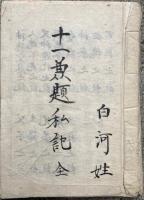 十一兼題私記 全
白河姓